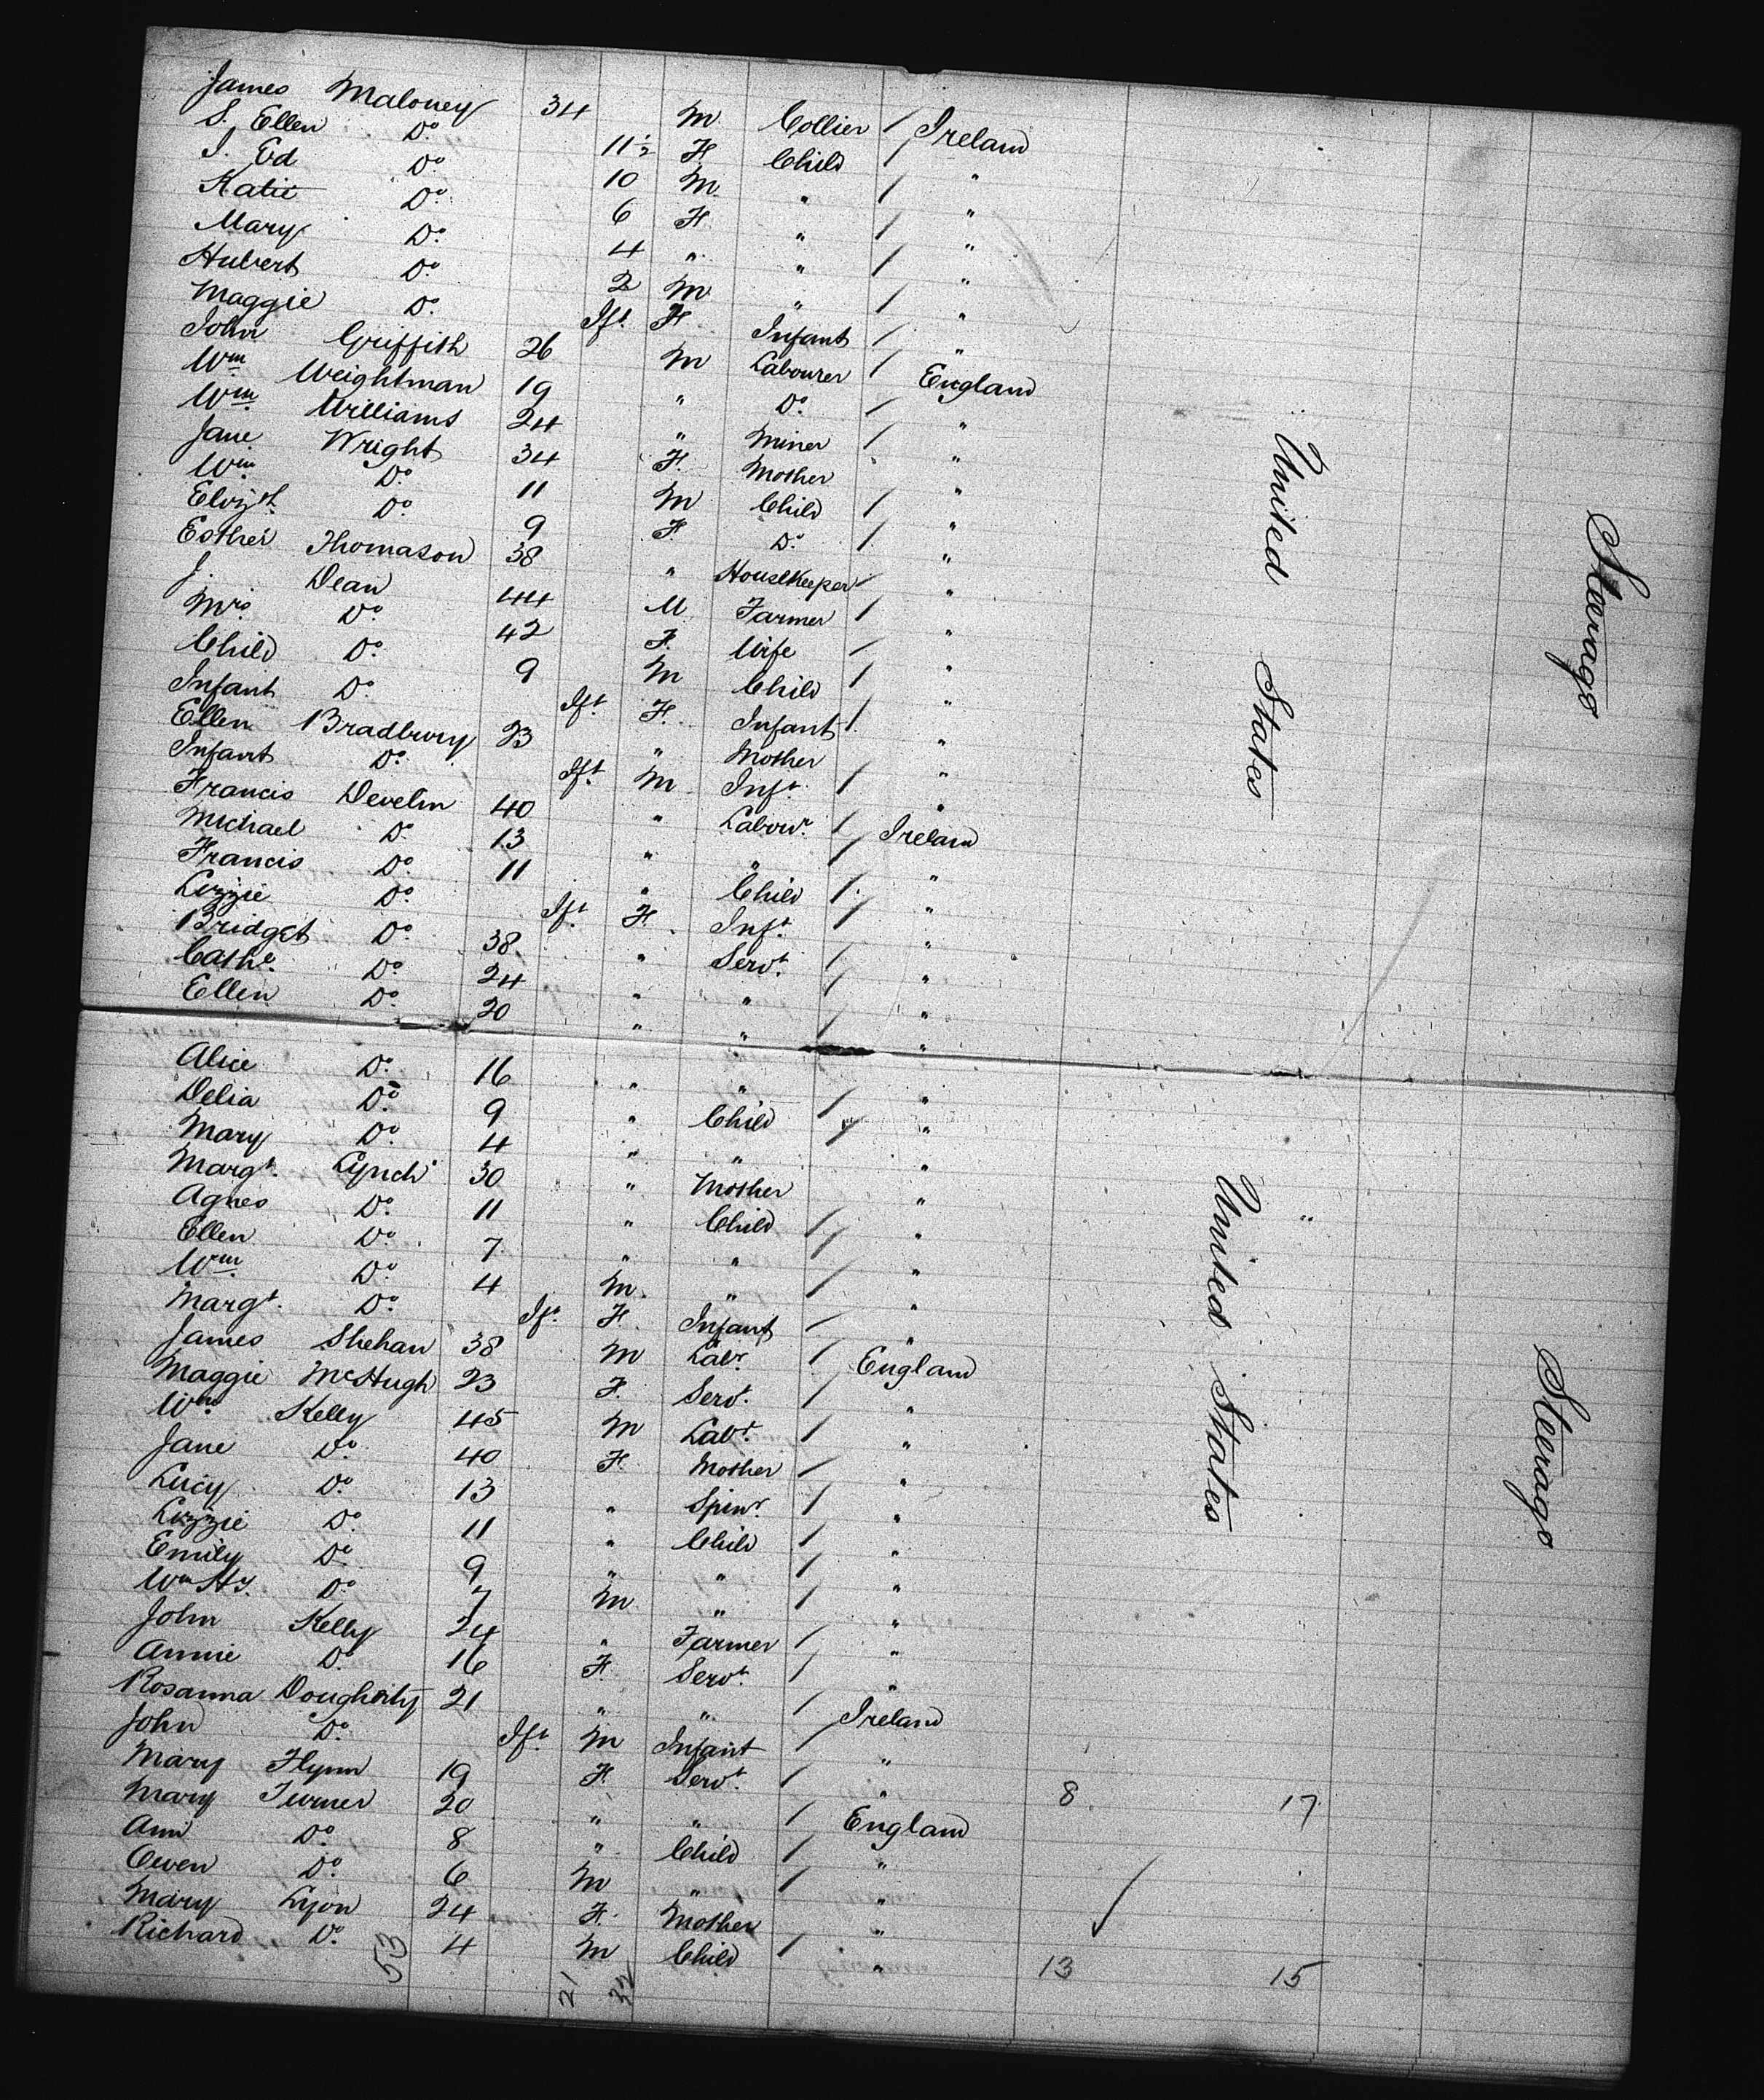 James Maloney 34 M Collier / Ireland
S. Ellen Do 11½ F Child / "
J. Ed Do 10 M " / "
Katie Do 6 F " / "
Mary Do 4 " " / "
Hubert Do 2 M " / "
Maggie Do Ift F Infant / "
John Griffith 26 M Labourer / England
Wm Weightman 19 " Do / "
Wm Williams 24 " Miner / "
Jane Wright 34 F Mother "
Wm Do 11 M Child / "
Elizth Do 9 F Do / "
Esther Thomason 38 " Housekeeper / "
J. Dean 44 M Farmer / "
Mrs Do 42 F Wife / "
Child Do 9 M Child / "
Infant Do Ift F Infant / "
Ellen Bradbury 23 " Mother "
Infant Do Ift M Inft / "
Francis Develin 40 " Labour / Ireland
Michael Do 13 " " / "
Francis Do 11 " Child / "
Lizzie Do Ift F Inft / "
Bridget Do 38 " Servt / "
Cathe Do 24 " " / "
Ellen Do 20 " " / "
Alice Do 16 " " / "
Delia Do 9 " Child / "
Mary Do 4 " " "
Margt Lynch 30 " Mother "
Agnes Do 11 " Child / "
Ellen Do 7 " " / "
Wm Do 4 M " / "
Margt Do Ift F Infant / "
James Shehan 38 M Labr / England
Maggie McHugh 23 F Servt / "
Wm Kelly 45 M Labr / "
Jane Do 40 F Mother / "
Lucy Do 13 " Spinr / "
Lizzie Do 11 " Child / "
Emily Do 9 " " / "
Wm Hy Do 7 M " / "
John Kelly 24 " Farmer / "
Annie Do 16 F Servt / "
Rosanna Dougherty 21 " " / Ireland
John Do Ift M Infant / "
Mary Flynn 19 F Servt / " 8 17
Mary Turner 20 " " / England
Ann Do 8 " Child / "
Owen Do 6 M " / "
Mary Lyon 24 F Mother "
Richard Do 4 M Child / " 13 15
53 21 32
United States
Steerage
United States
Steerage